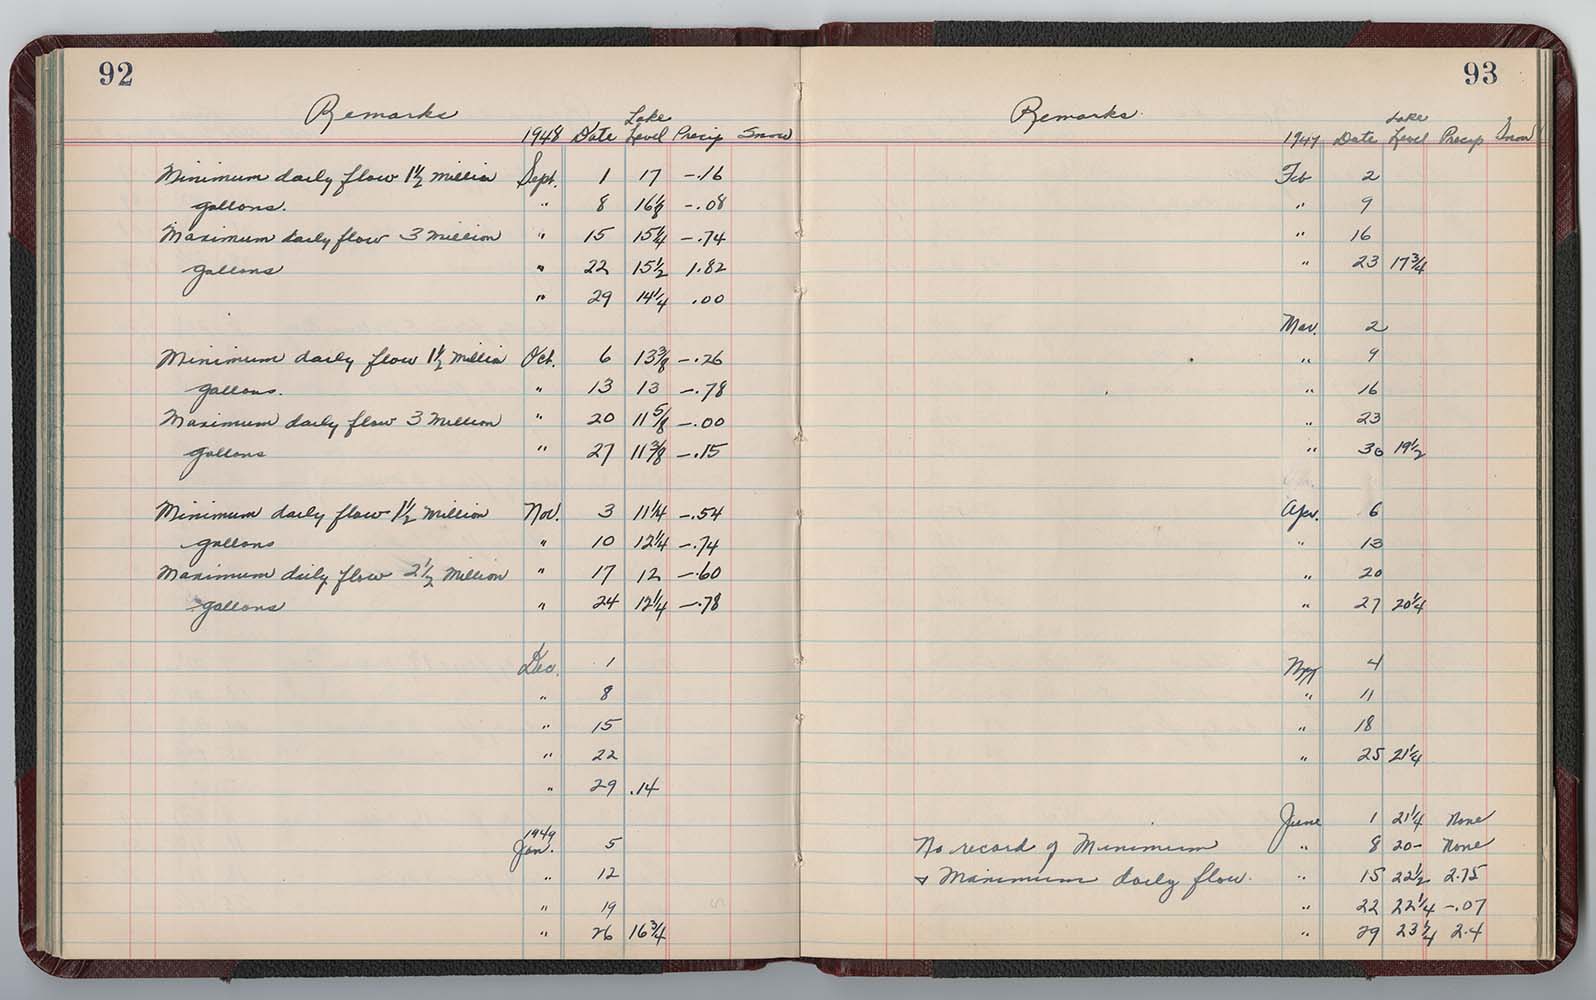 92
Remarks
1948 Date Lake Level Precip Snow
Minimum daily flow 1 1/2 Million Sept. 1 17 -.16
gallons. " 8 16 1/8 -.08
Maximum daily flow 3 Million " 15 15 1/4 -.74
gallons " 22 15 1/2 1.82
" 29 14 1/4 .00
Minimum daily flow 1 1/2 Million Oct. 6 13 3/8 -.26
gallons. " 13 13 -.78
Maximum daily flow 3 Million " 20 11 5/8 -.00
gallons " 27 11 3/8 -.15
Minimum daily flow 1 1/2 Million Nov. 3 11 1/4 -.54
gallons " 10 12 1/4 -.74
Maximum daily flow 2 1/2 Million " 17 12 -.60
gallons " 24 12 1/4 -.78
Dec. 1
" 8
" 15
" 22
" 29 .14
1949
Jan. 5
" 12
" 19
" 26 16 3/4
93
Remarks
Date Lake Level Precip Snow
Feb 2
" 9
" 16
" 23 17 3/4
Mar. 2
" 9
" 16
" 23
" 30 19 1/2
Apr. 6
" 13
" 20
" 27 20 1/4
May 4
" 11
" 18
" 25 21 1/4
June 1 21 1/4 None
No record of Minimum " 8 20- None
& Maximum daily flow. " 15 22 1/2 2.75
" 22 22 1/4 -.07
" 29 23 1/4 2.4